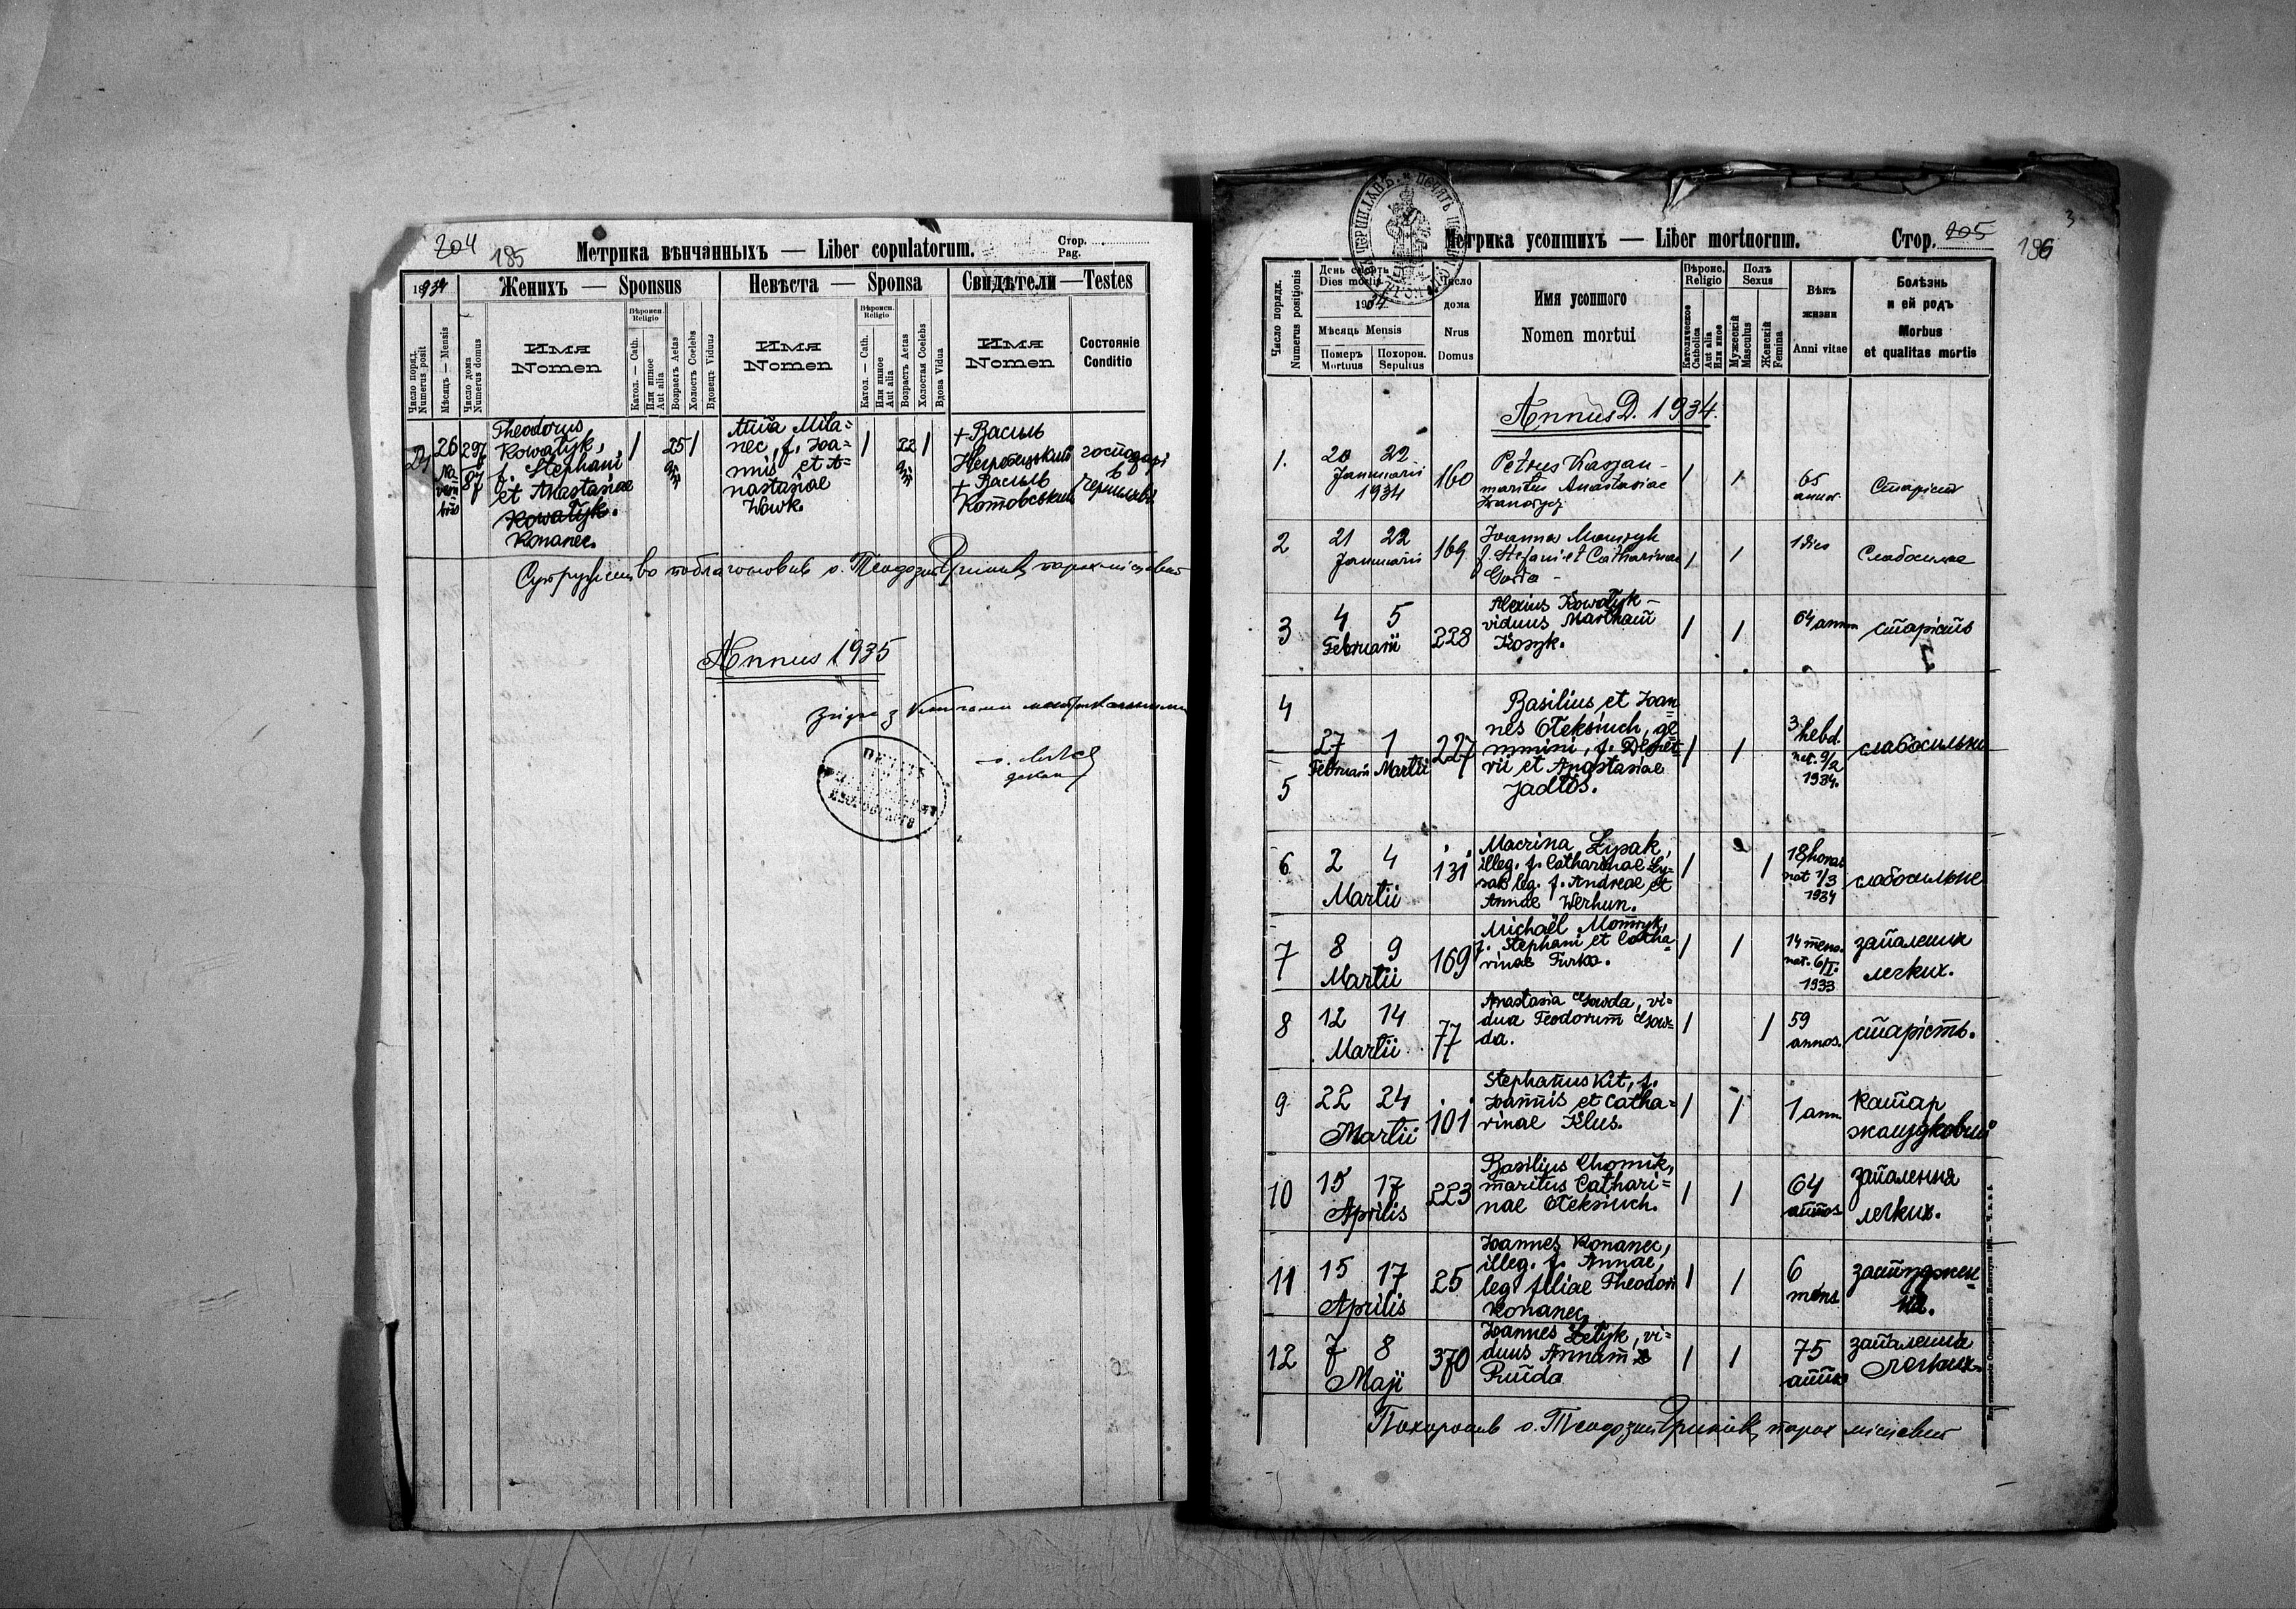 204
185
Метрика вѣнчанныхъ — Liber copulatorum.
Стор.
Pag.
1934
Женихъ — Sponsus
Невѣста — Sponsa
Свидѣтели — Testes
Число поряд.
Numerus posit
Мѣсяцъ — Mensis
Число дома
Numerus domus
Имя
Nomen
Вѣроисп.
Religio
Катол. — Cath.
Или иное
Aut alia
Возрастъ Aetas
Холостъ Coelebs
Вдовецъ Viduus
Имя
Nomen
Вѣроисп.
Religio
Катол. — Cath.
Или иное
Aut alia
Возрастъ Aetas
Холостая Coelebs
Вдова Vidua
Имя
Nomen
Состояніе
Conditio
26
No-
vem
bris
297
87
Theodorus
Kowałyk,
f. Stephani
et Anastasiae
Kowałyk.
Konanec.
/
25
/
Anna Mila=
nec, f. Joa=
nnis et A=
nastasiae
Wowk.
/
22
/
+ Василь
+ Василь
Котовський
господарі
в
Супружество поблагословив о. Теодозий парох місцевий
Annus 1935
з
о.
декан
3
Метрика усопшихъ — Liber mortuorum.
Стор. 205
186
Число порядк.
Numerus positionis
День смерть
Dies mortis
1934
Мѣсяцъ Mensis
Померъ
Mortuus
Похорон.
Sepultus
Число
дома
Nrus
Domus
Имя усопшого
Nomen mortui
Вѣроис.
Religio
Католическое
Catholica
Или иное
Aut alia
Полъ
Sexus
Мужескій
Masculus
Женскій
Femina
Вѣкъ
жизни
Anni vitae
Болѣзнь
и ей родъ
Morbus
et qualitas mortis
Annus D. 1934.
1.
20 22
Januarii
1934
160
Petrus Kasjan -
maritus Anastasiae
/
/
65
annor
Старість
2
21 22
Januarii
169
Joanna Momryk
f. Stefani et Catharinae
/
/
1 dies
Слабосильне
3
4 5
Februarii
228
Alexius Kowałyk -
viduus Martham
Kosyk.
/
/
64 annor
старість
4
5
27 1
Februarii Martii
227
Basilius et Joan
nes Ołeksiuch, ge
mmini, f. Demet-
rii et Anastasiae
Jadłoś.
/
/
3 hebd.
nat. 9/2
1934.
слабосильні
6
2 4
Martii
131
Macrina Łysak,
illeg. f. Catharinae Ły-
sak leg. f. Andreae et
Annae Werhun.
/
/
18 horas
nat 1/3
1934
слабосильне
7
8 9
Martii
169
Michaël Momryk,
f. Stephani et Catha-
rinae Furka.
/
/
14 mens.
nat. 6/I.
1933
запалення
легких.
8
12 14
Martii
77
Anastasia Gowda, vi=
dua Teodorum Gow=
da.
/
/
59
annos.
старість.
9
22 24
Martii
101
Stephanus Kit, f.
Joannis et Catha=
rinae Klus.
/
/
1 ann
катар
жолудковий
10
15 17
Aprilis
223
Basilius Chomik,
maritus Cathari=
nae Ołeksiuch.
/
/
64
annos
запалення
легких.
11
15 17
Aprilis
25
Joannes Konanec,
illeg. f. Annae,
leg filiae Theodori
Konanec,
/
/
6
mens
застуджен=
ня.
12
7 8
Maji
370
Joannes Łetyk, vi=
duus Annam
Runda
/
/
75
annos
запалення
легких
Похоронив о. Теодозий парох місцевий